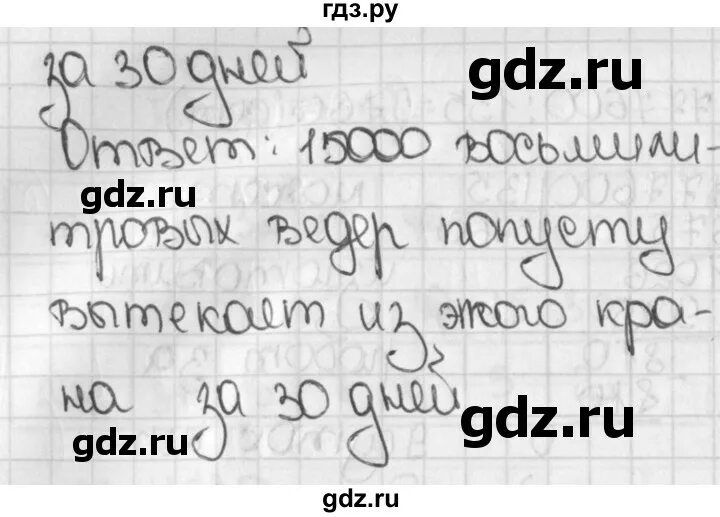 гдз.ру
за 30 дней
gdz.ru
Ответ: 15000 восьмили-
gdz.ru
тровых ведер попусту
вытекает из этого кра-
gdz.ru
на за 30 дней
gdz.ru
gdz.ru
gdz.ru